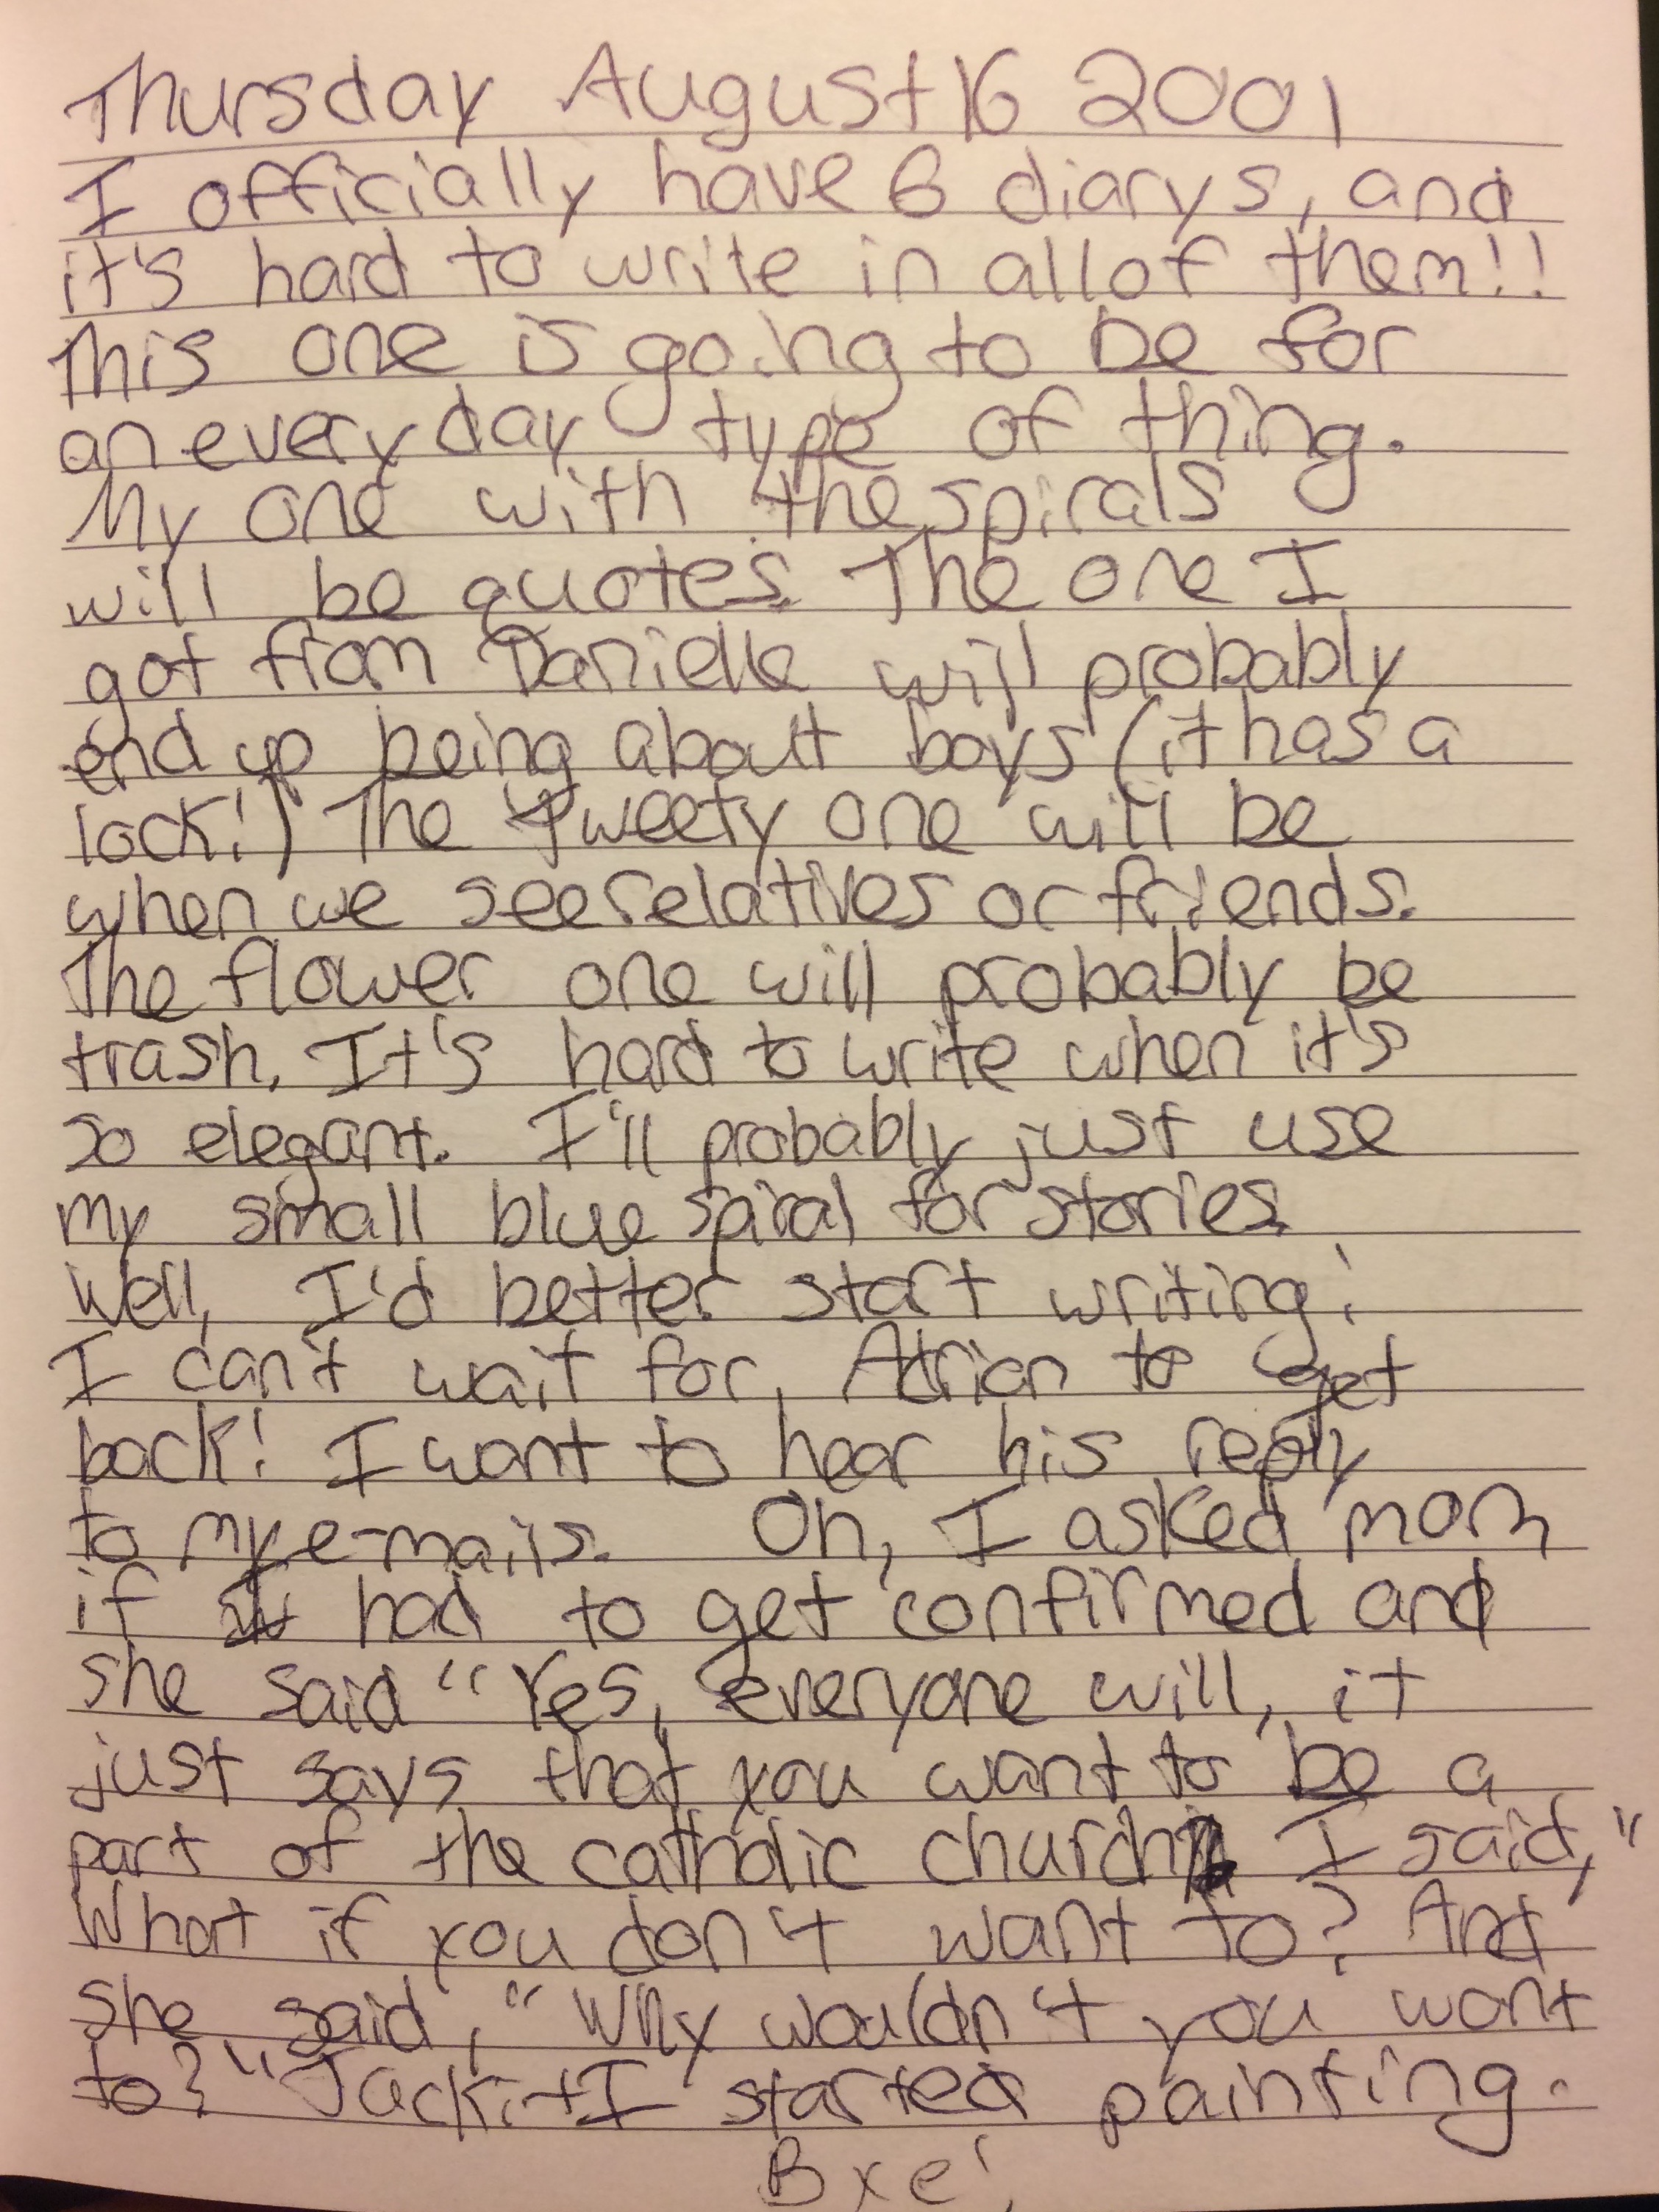 Thursday August 16 2001
I officially have 6 diarys, and
it's hard to write in all of them!!
This one is going to be for
an every day type of thing.
My one with the spirals
will be quotes. The one I
got from Danielle will probably
end up being about boys (it has a
lock!) The Tweety one will be
when we see relatives or friends.
The flower one will probably be
trash. It's hard to write when it's
so elegant. I'll probably just use
my small blue spiral for stories.
Well, I'd better start writing!
I can't wait for Adrian to get
back! I want to hear his reply
to my e-mails. Oh, I asked mom
if I had to get confirmed and
she said "Yes, everyone will, it
just says that you want to be a
part of the catholic church. I said, "
What if you don't want to? And
she said, "Why wouldn't you want
to?" Jacki + I started painting.
Bye!